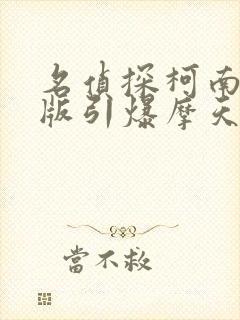 名偵探柯南
版引爆摩天
當不救